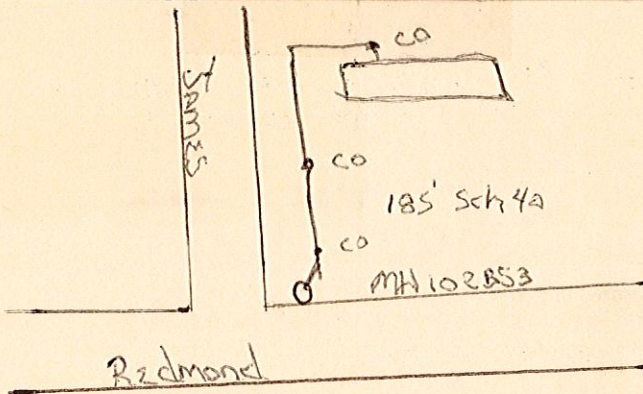 CO
JAMES
CO
185' Sch 40
CO
MH102B53
Redmond